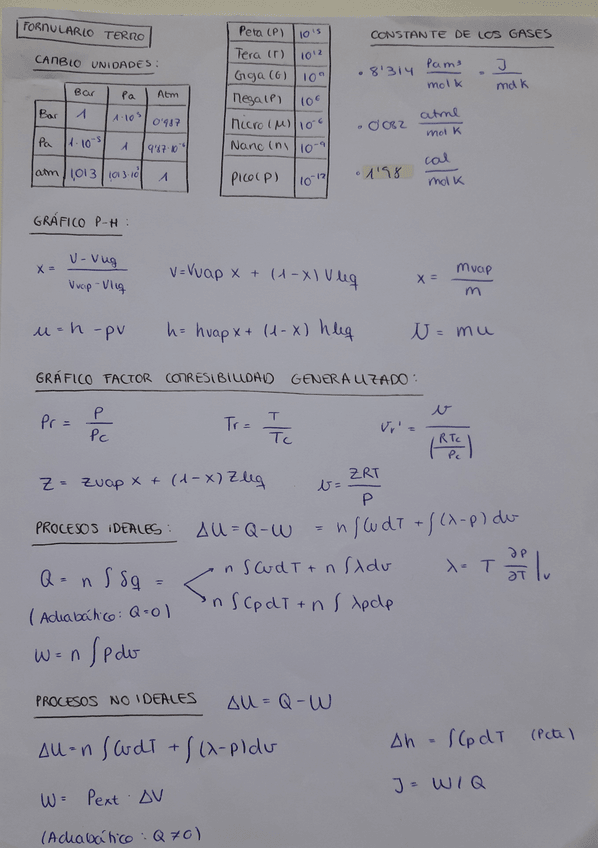 FORMULARIO TERMO
CAMBIO UNIDADES:
Bar Pa Atm
Bar 1 1·10⁵ 0'987
Pa 1·10⁻⁵ 1 9'87·10⁻⁶
atm 1,013 1,013·10⁵ 1
Peta (P) 10¹⁵
Tera (T) 10¹²
Giga (G) 10⁹
Mega (M) 10⁶
Micro (μ) 10⁻⁶
Nano (n) 10⁻⁹
Pico (p) 10⁻¹²
CONSTANTE DE LOS GASES
· 8'314 Pa m³ / mol K = J / mol K
· 0'082 atm l / mol K
· 1'98 cal / mol K
GRÁFICO P-H:
x = (V - Vliq) / (Vvap - Vliq) V = Vvap x + (1-x) Vliq x = mvap / m
u = h - pv h = hvap x + (1-x) hliq U = mu
GRÁFICO FACTOR COMPRESIBILIDAD GENERALIZADO:
Pr = P / Pc Tr = T / Tc Vr' = v / (RTc / Pc)
Z = Zvap x + (1-x) Zliq v = ZRT / P
PROCESOS IDEALES: ΔU = Q - W = n ∫ Cv dT + ∫ (λ - p) dv
Q = n ∫ δq = n ∫ Cv dT + n ∫ λ dv λ = T ∂P/∂T |v
n ∫ Cp dT + n ∫ λp dp
(Adiabático: Q = 0)
W = n ∫ P dv
PROCESOS NO IDEALES ΔU = Q - W
ΔU = n ∫ Cv dT + ∫ (λ - p) dv Δh = ∫ Cp dT (P cte)
W = Pext · ΔV J = W / Q
(Adiabático: Q ≠ 0)